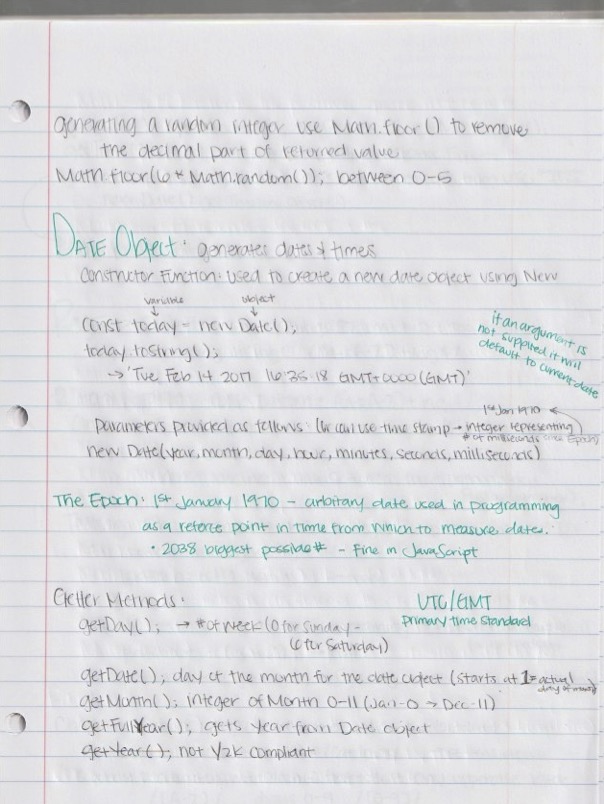 generating a random integer use Math.floor() to remove
the decimal part of returned value
Math.floor(6 * Math.random()); between 0-5
DATE Object: generates dates & times
Constructor Function: used to create a new date object using New
variable object
const today = new Date();
today.toString();
→ 'Tue Feb 14 2017 16:35:18 GMT+0000 (GMT)'
if an argument is
not supplied it will
default to current date
1st Jan 1970
Parameters provided as follows: (or can use time stamp → integer representing
# of milliseconds since Epoch)
new Date(year, month, day, hour, minutes, seconds, milliseconds)
The Epoch: 1st January 1970 - arbitary date used in programming
as a referce point in time from which to measure dates.
• 2038 biggest possible # - Fine in JavaScript
Getter Methods:
UTC/GMT
Primary time standard
getDay(); → # of week (0 for Sunday -
6 for Saturday)
getDate(); day of the month for the date object (starts at 1 = actual
day of month)
getMonth(); integer of Month 0-11 (Jan-0 → Dec-11)
getFullYear(); gets year from Date object
getYear(); not Y2K compliant